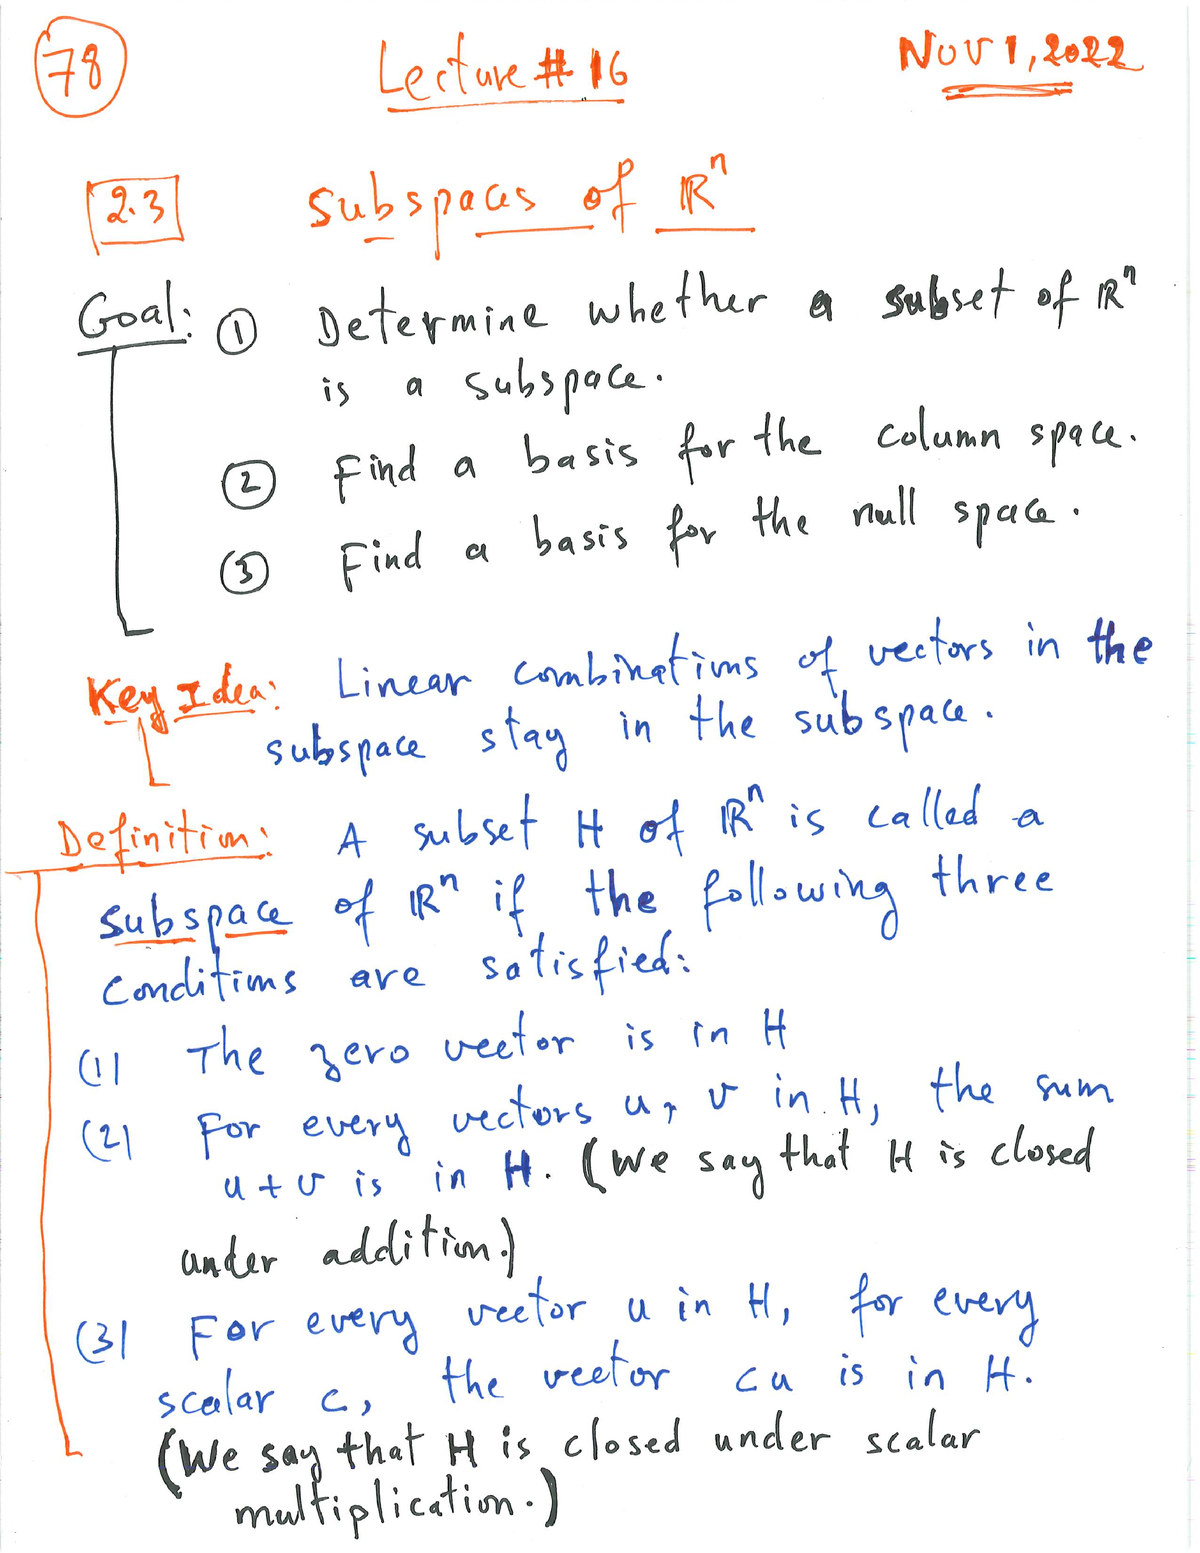 78 Lecture # 16 Nov 1, 2022
2.3 Subspaces of ℝⁿ
Goal: ① Determine whether a subset of ℝⁿ
is a subspace.
② Find a basis for the column space.
③ Find a basis for the null space.
Key Idea: Linear combinations of vectors in the
subspace stay in the subspace.
Definition: A subset H of ℝⁿ is called a
subspace of ℝⁿ if the following three
conditions are satisfied:
(1) The zero vector is in H
(2) For every vectors u, v in H, the sum
u + v is in H. (We say that H is closed
under addition.)
(3) For every vector u in H, for every
scalar c, the vector cu is in H.
(We say that H is closed under scalar
multiplication.)